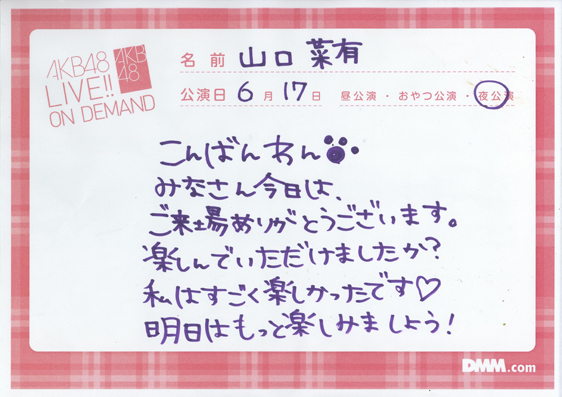 AKB48
LIVE!!
ON DEMAND
AKB
48
名前 山口 菜有
公演日 6月17日 昼公演・おやつ公演・夜公演
こんばんわん
みなさん今日は、
ご来場ありがとうございます。
楽しんでいただけましたか?
私はすごく楽しかったです♡
明日はもっと楽しみましょう!
DMM.com